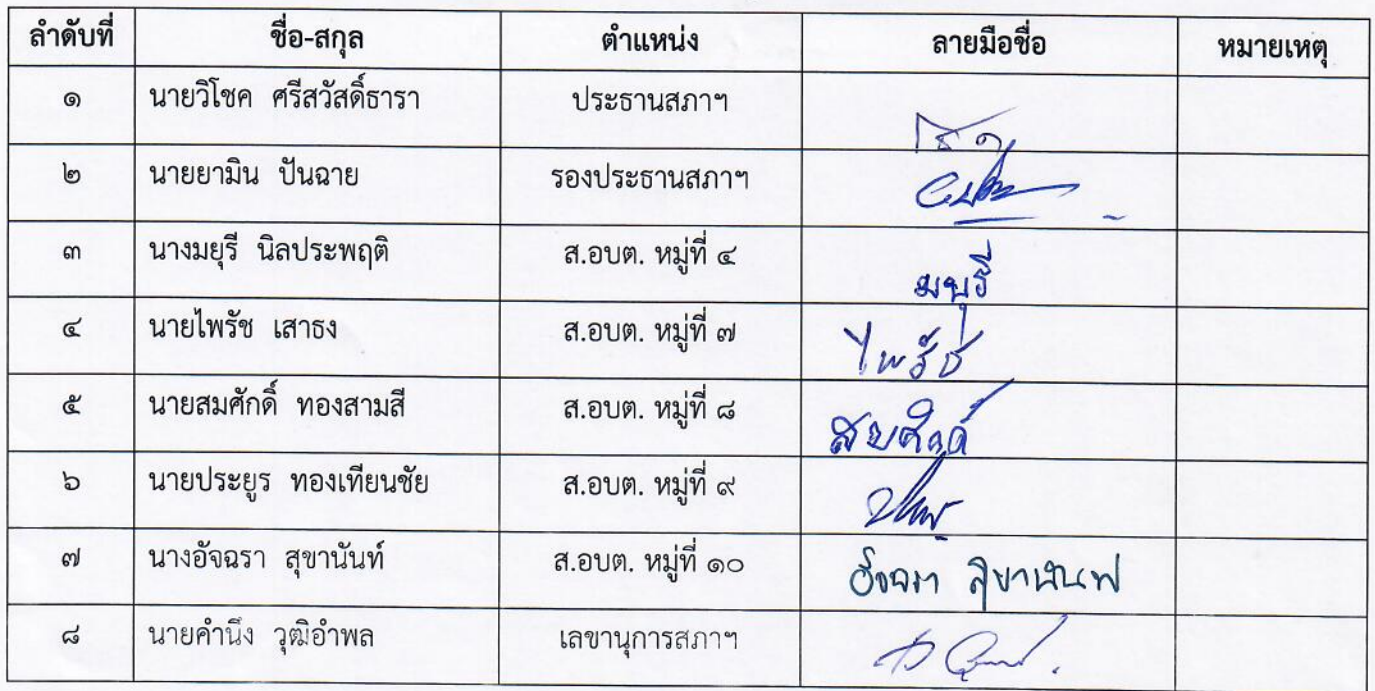 ลำดับที่ ชื่อ-สกุล ตำแหน่ง ลายมือชื่อ หมายเหตุ
๑ นายวิโชค ศรีสวัสดิ์ธารา ประธานสภาฯ
๒ นายยามิน ปันฉาย รองประธานสภาฯ
๓ นางมยุรี นิลประพฤติ ส.อบต. หมู่ที่ ๔ มยุรี
๔ นายไพรัช เสาธง ส.อบต. หมู่ที่ ๗ ไพรัช
๕ นายสมศักดิ์ ทองสามสี ส.อบต. หมู่ที่ ๘ สมศักดิ์
๖ นายประยูร ทองเทียนชัย ส.อบต. หมู่ที่ ๙
๗ นางอัจฉรา สุขานันท์ ส.อบต. หมู่ที่ ๑๐ อัจฉรา สุขานันท์
๘ นายคำนึง วุฒิอำพล เลขานุการสภาฯ